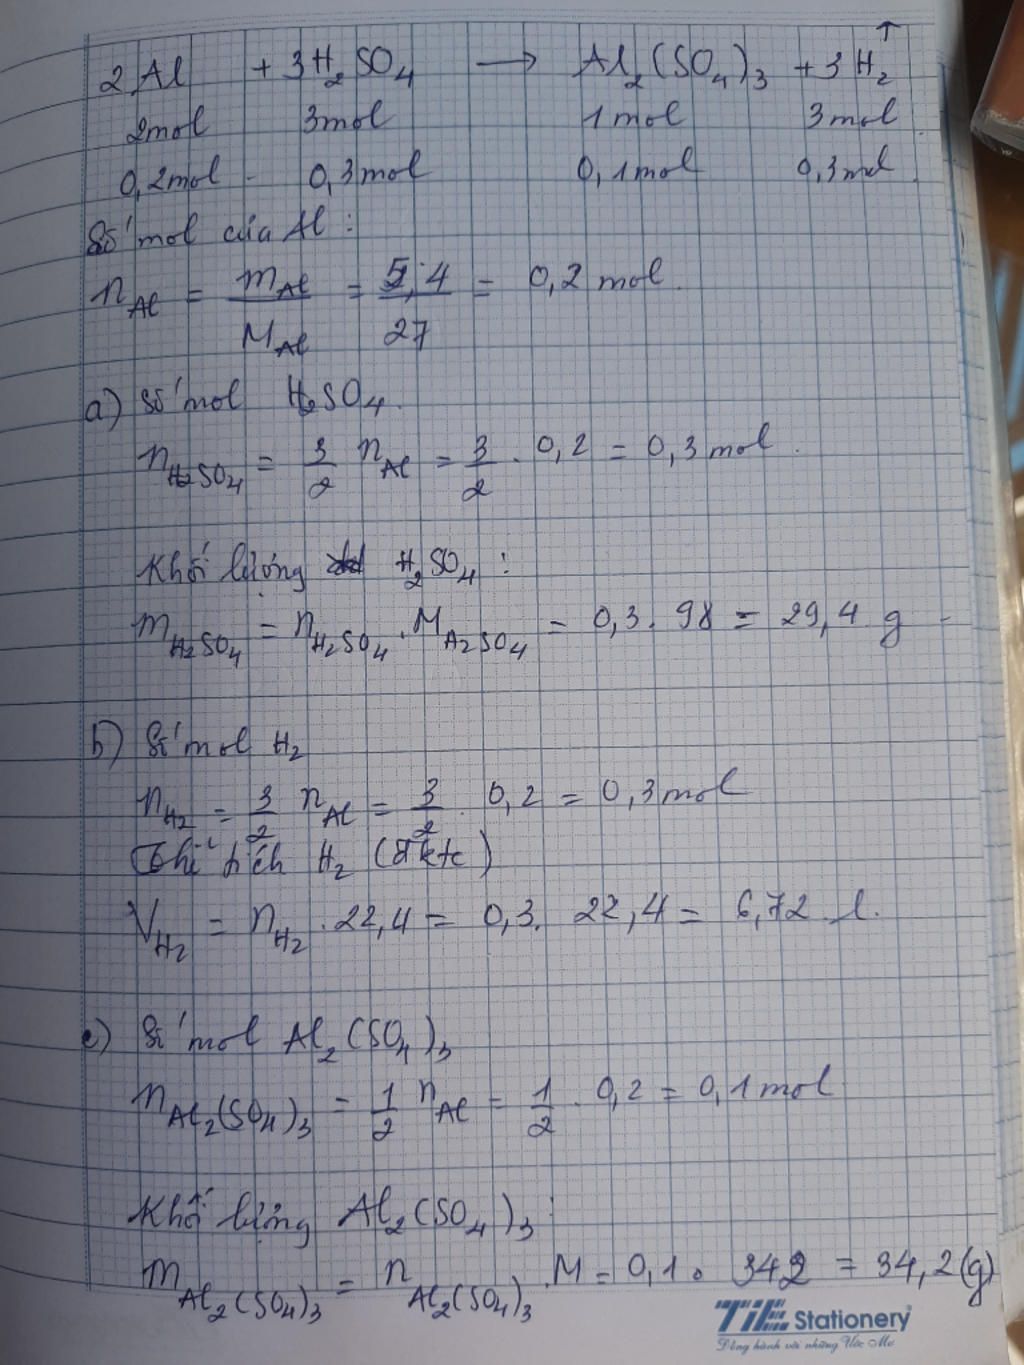 2Al + 3H₂SO₄ → Al₂(SO₄)₃ + 3H₂↑
2mol 3mol 1mol 3mol
0,2mol 0,3mol 0,1mol 0,3mol
Số mol của Al:
n_Al = m_Al / M_Al = 5,4 / 27 = 0,2 mol.
a) Số mol H₂SO₄.
n_H₂SO₄ = 3/2 n_Al = 3/2 . 0,2 = 0,3 mol.
Khối lượng H₂SO₄:
m_H₂SO₄ = n_H₂SO₄ . M_H₂SO₄ = 0,3. 98 = 29,4 g
b) Số mol H₂
n_H₂ = 3/2 n_Al = 3/2 . 0,2 = 0,3 mol
Thể tích H₂ (đktc)
V_H₂ = n_H₂ . 22,4 = 0,3. 22,4 = 6,72 l.
c) Số mol Al₂(SO₄)₃
n_Al₂(SO₄)₃ = 1/2 n_Al = 1/2 . 0,2 = 0,1 mol
Khối lượng Al₂(SO₄)₃:
m_Al₂(SO₄)₃ = n_Al₂(SO₄)₃ . M = 0,1 . 342 = 34,2 (g)
Stationery
Đồng hành với những Ước Mơ